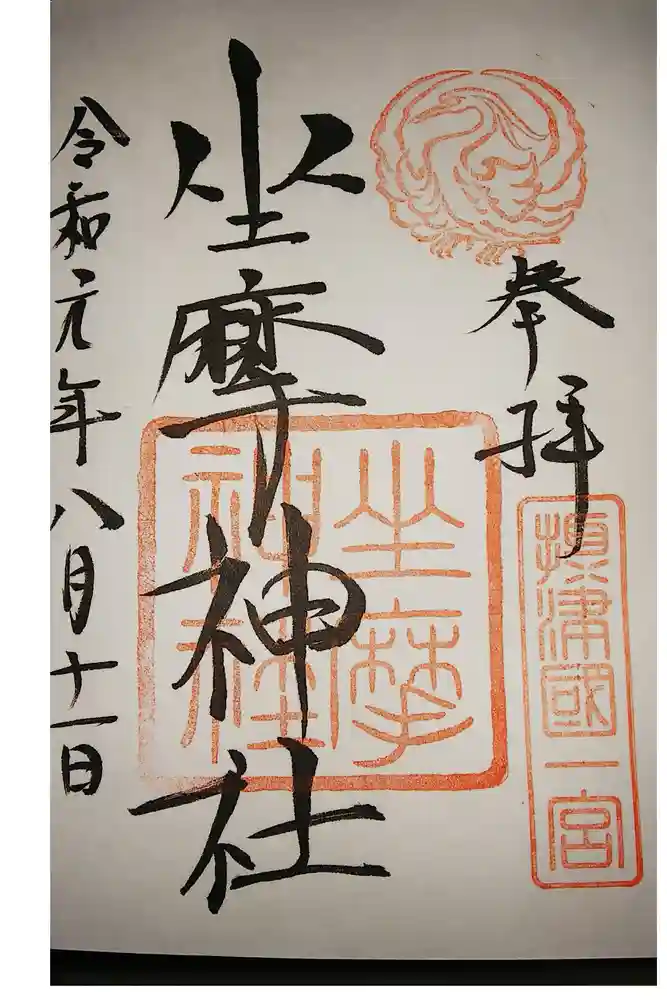 奉拝
摂津國一宮
坐摩神社
坐摩神社
令和元年八月十一日